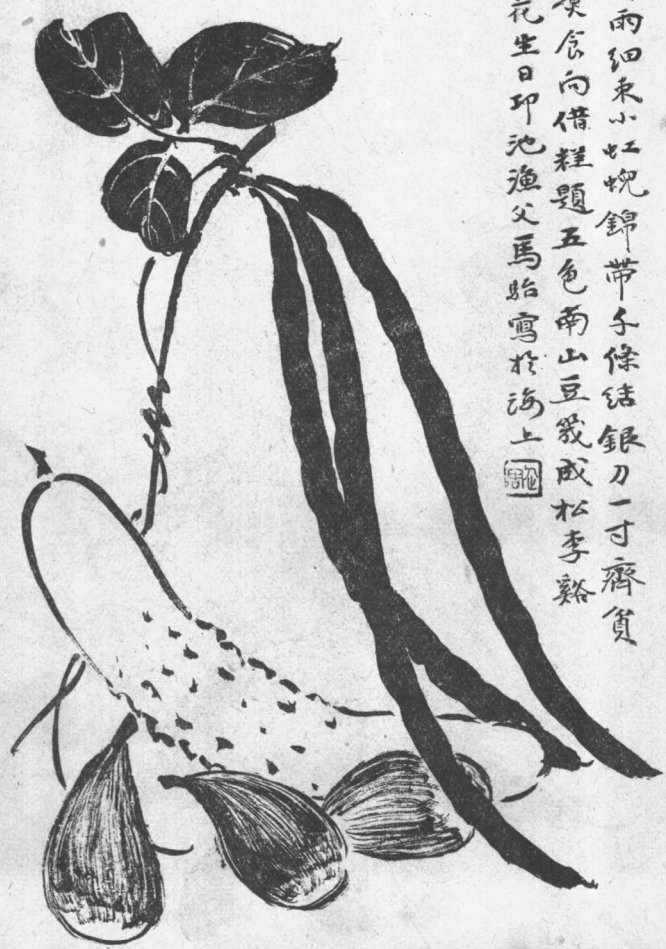 雨細束小虹蜺錦帶千條結銀刀一寸齊貧
食向借糕題五色南山豆幾成松李谿
花生日印池漁父馬駘寫於海上